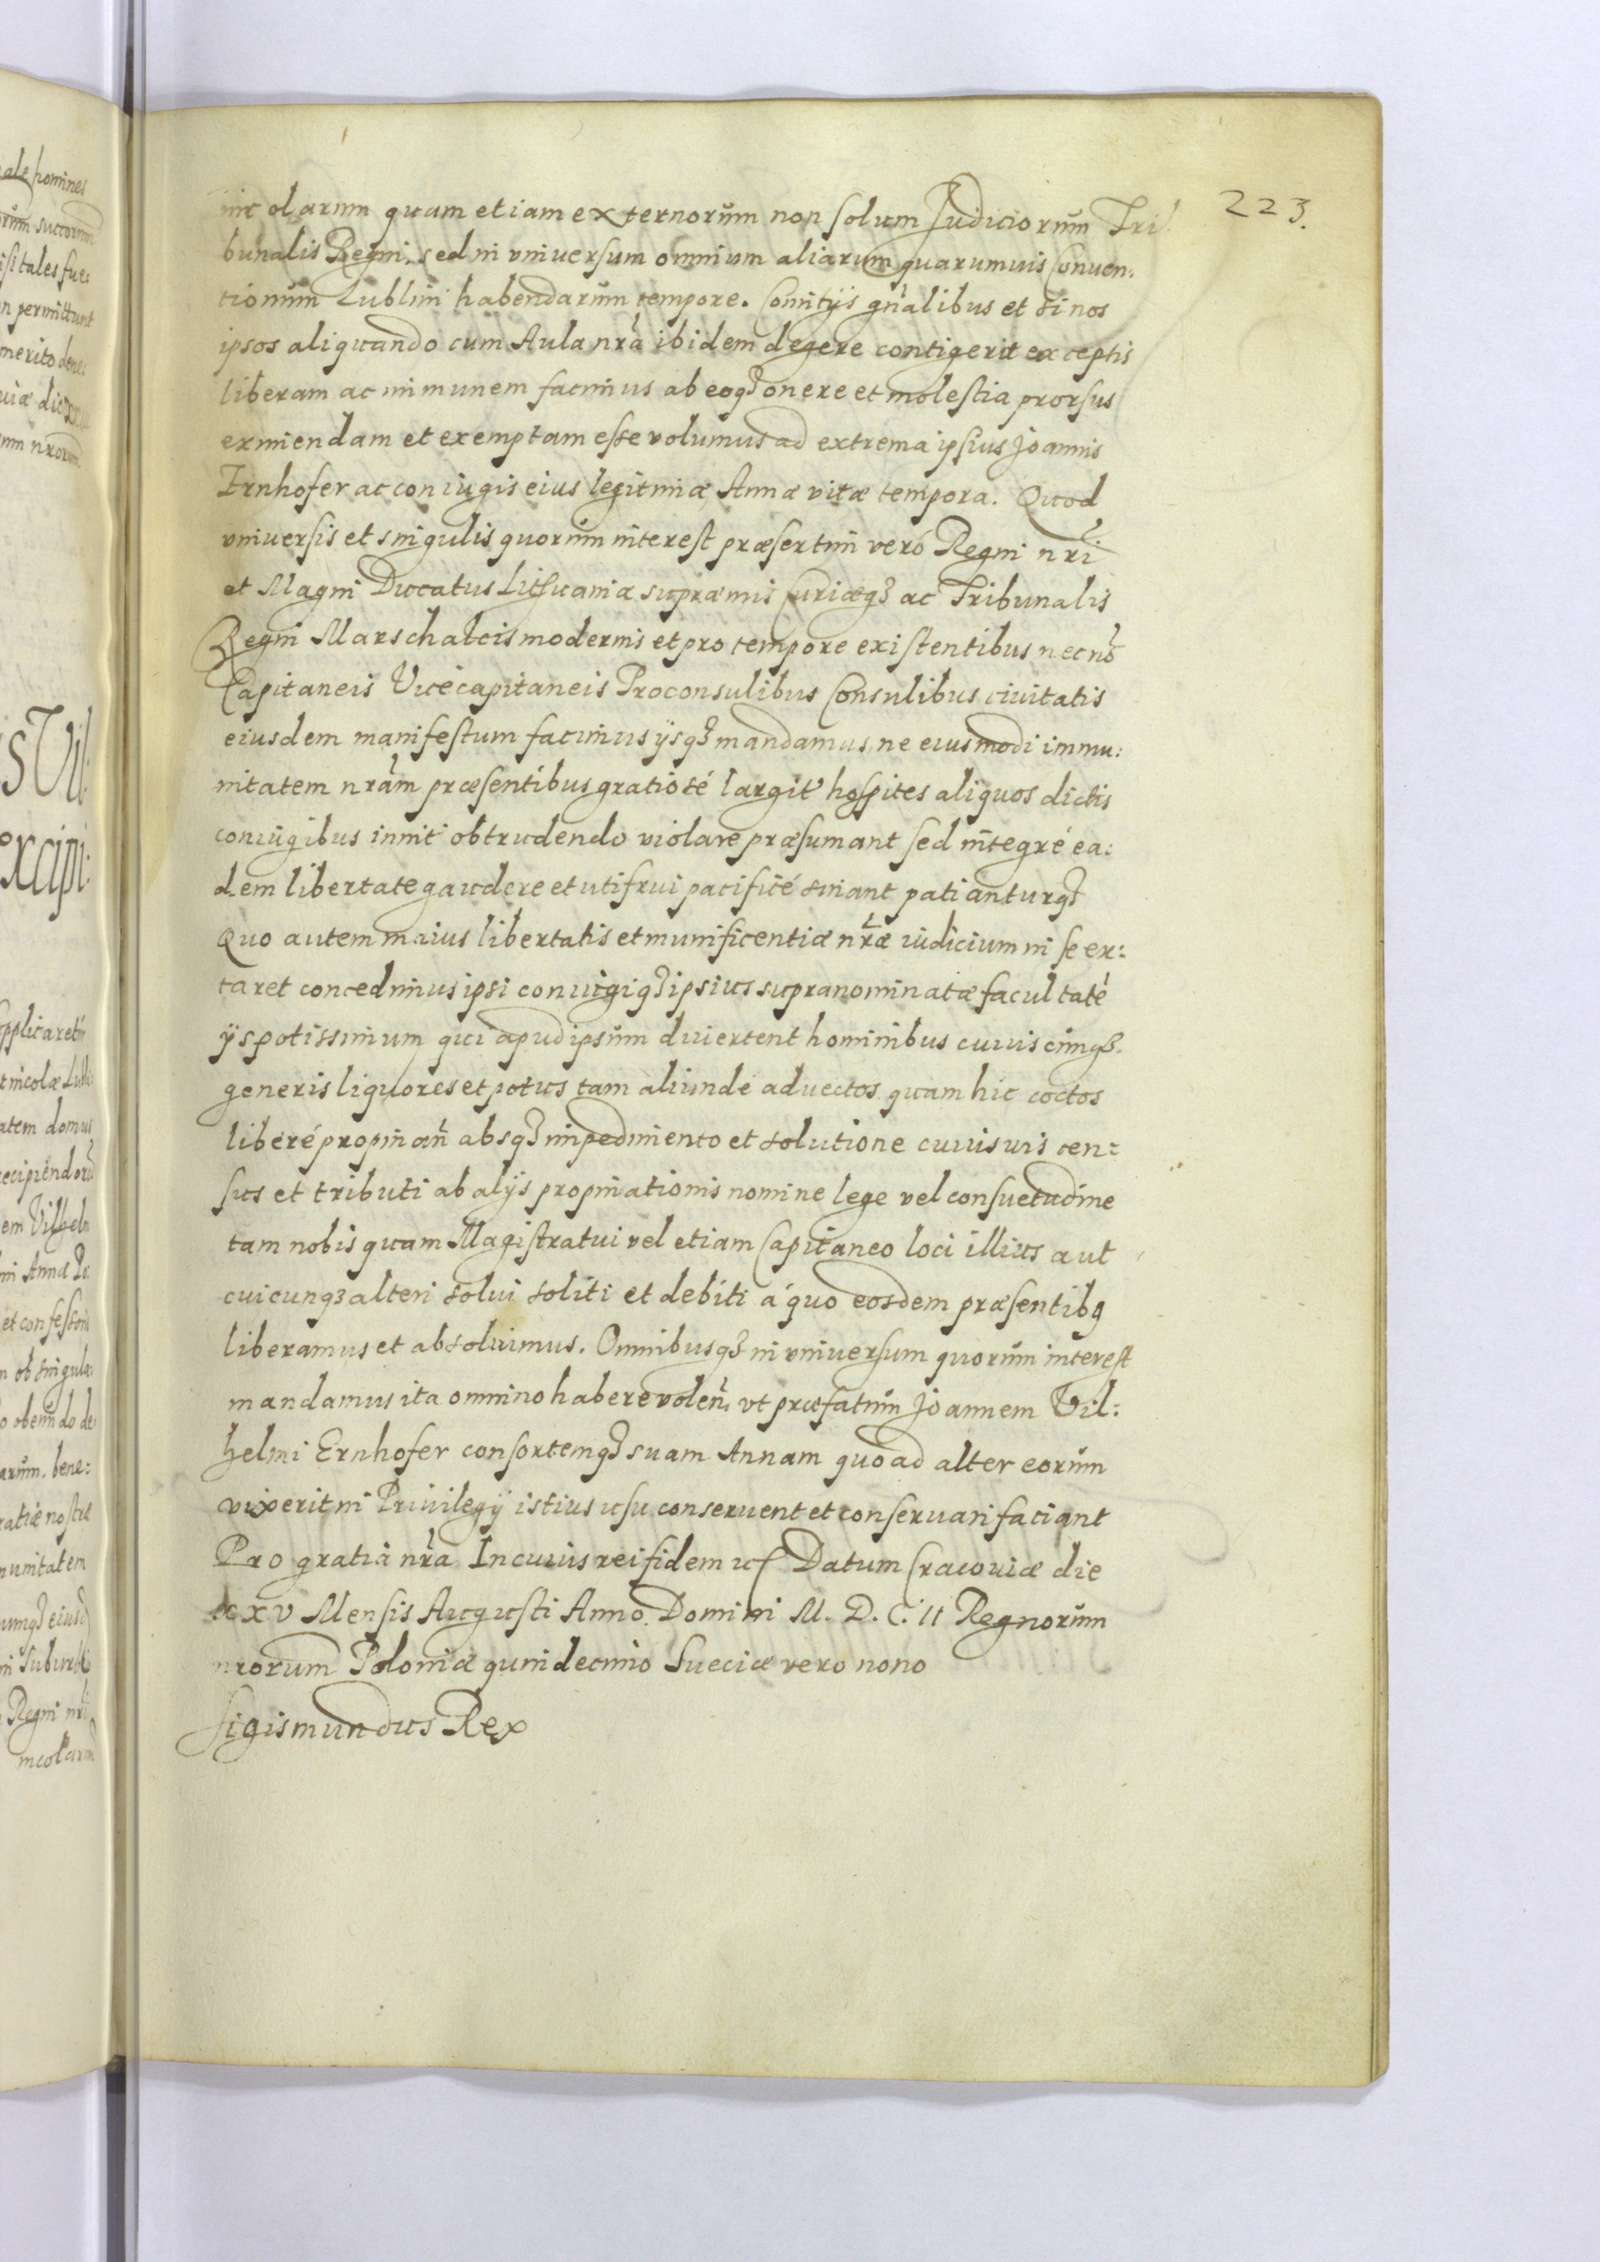 223.
incolarum quam etiam externorum non solum Judiciorum Tri
bunalis Regni, sed in vniuersum omnium aliarum quarumuis Conuen:
tionum Lublini habendarum tempore. Comitijs gnalibus et si nos
ipsos aliquando cum Aula nrã ibidem degere contigerit exceptis
liberam ac immunem facimus ab eoq3 onere et molestia prorsus
eximendam et exemptam esse volumus ad extrema ipsius Joannis
Ernhofer ac coniugis eius legitimæ Annæ vitæ tempora. Quod
vniuersis et singulis quorum interest præsertim veró Regni nri
et Magni Ducatus Lithuaniæ supræmis Curiæq3 ac Tribunalis
Regni Marschalcis modernis et pro tempore existentibus necnõ
Capitaneis Vicecapitaneis Proconsulibus Consulibus ciuitatis
eiusdem manifestum facimus ijsq3 mandamus, ne eiusmodi immu:
nitatem nrãm præsentibus gratiosé largit hospites aliquos dictis
coniugibus inuit obtrudendo violare præsumant sed integré ea:
dem libertate gaudere et utifrui pacificé sinant patianturq3
Quo autem maius libertatis et munificentiæ nræ iudicium in se ex:
taret concedimus ipsi coniugiq3 ipsius supranominatæ facultaté
ijs potissimum qui apud ipsum diuertent hominibus cuiuscunq3
generis liquores et potus tam aliunde aduectos quam hic coctos
liberé propinañ absq3 impedimento et solutione cuiusuis cen:
sus et tributi ab alijs propinationis nomine lege vel consuetudine
tam nobis quam Magistratui vel etiam Capitaneo loci illius aut
cuicunq3 alteri solui soliti et debiti á quo eosdem præsentibq
liberamus et absoluimus. Omnibusq3 in vniuersum quorum interest
mandamus ita omnino habere voleñ. vt præfatum Joannem Vil:
helmi Ernhofer consortemq3 suam Annam quoad alter eorum
vixerit in Priuilegij istius usu conseruent et conseruari faciant
Pro gratia nrã In cuius rei fidem Datum Cracouiæ die
xxv Mensis Augusti Anno Domini M. D. C. II Regnorum
nrorum Poloniæ quindecimo Sueciæ vero nono
Sigismundus Rex